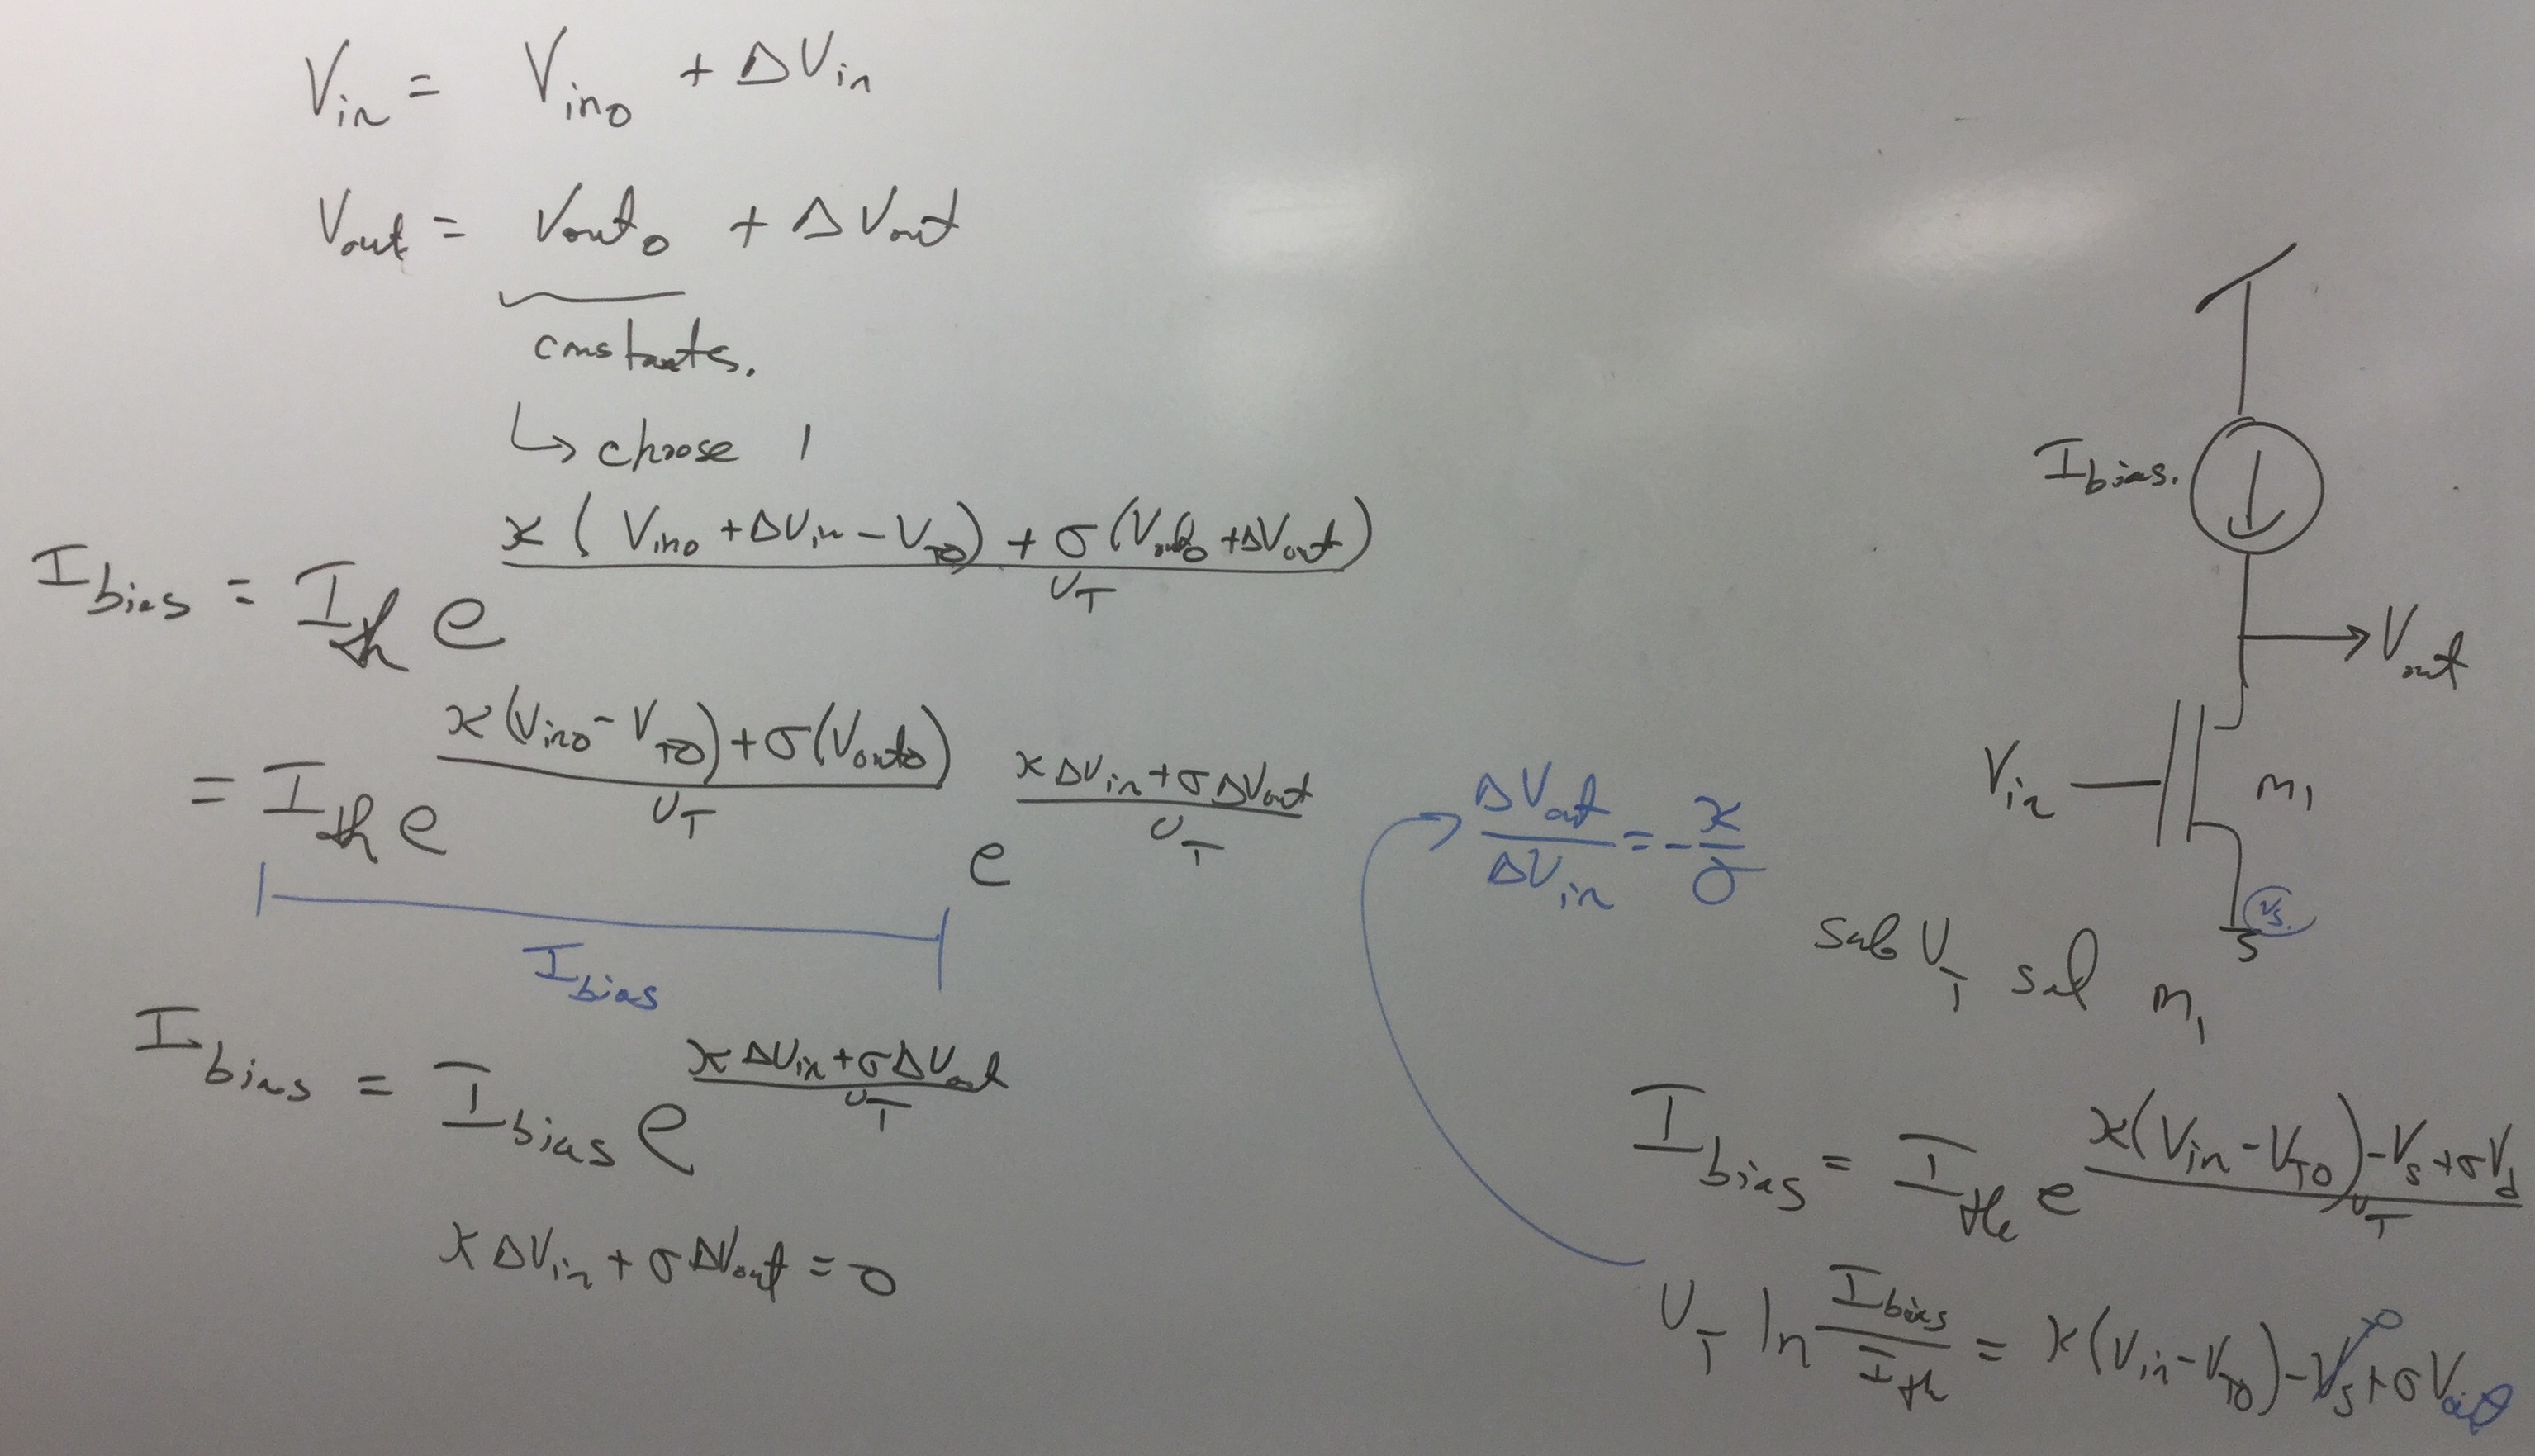 V_in = V_in0 + ΔV_in
V_out = V_out0 + ΔV_out
constants.
↳ choose 1
I_bias = I_th e^((κ(V_in0 + ΔV_in - V_T0) + σ(V_out0 + ΔV_out))/U_T)
= I_th e^((κ(V_in0 - V_T0) + σ(V_out0))/U_T) e^((κΔV_in + σΔV_out)/U_T)
I_bias
I_bias = I_bias e^((κΔV_in + σΔV_out)/U_T)
κΔV_in + σΔV_out = 0
ΔV_out/ΔV_in = -κ/σ
I_bias.
V_out
V_in
M_1
V_s
sub V_T sat M_1
I_bias = I_th e^((κ(V_in - V_T0) - V_s + σV_d)/U_T)
U_T ln I_bias/I_th = κ(V_in - V_T0) - V_s + σV_out
0